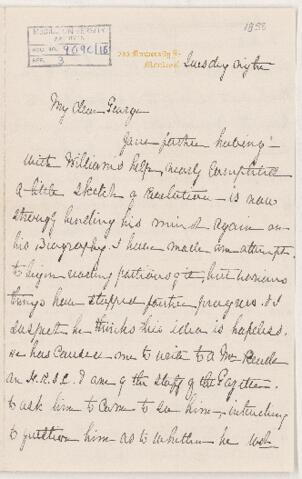 1898
McGILL UNIVERSITY
ARCHIVES
ACC. NO. 909C/18
REF. 3
University St
Montreal
Tuesday night
My dear George
Your father having
with William's help, nearly completed
a little sketch & resolution - is now
strongly bending his mind again on
his Biography. I have made an attempt
to begin reading portions of it, but various
things have stopped further progress. & I
suspect he thinks his idea is hopeless.
He has caused me to write to a Mr
an F.R.S.L. & one of the staff of the Gazette.
to ask him to come to see him - intending
to question him as to whether he